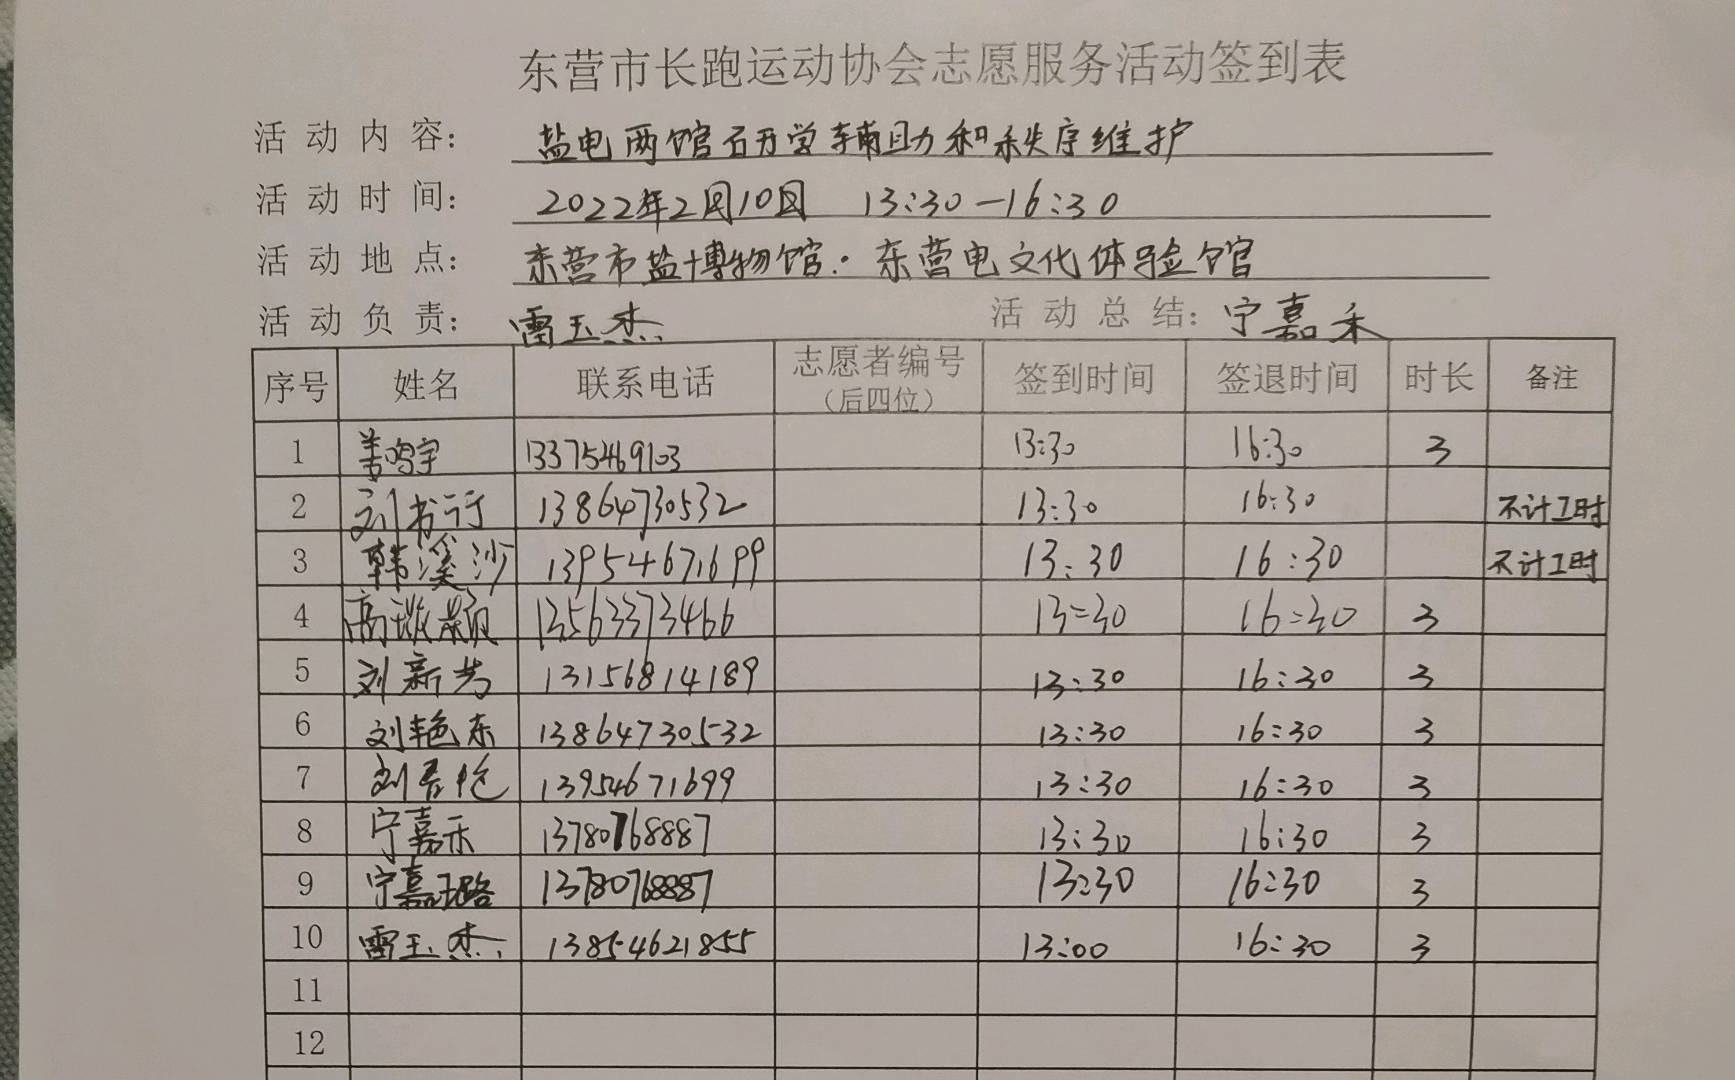 东营市长跑运动协会志愿服务活动签到表
活动内容： 盐电两馆研学辅助和秩序维护
活动时间： 2022年2月10日 13:30—16:30
活动地点： 东营市盐博物馆．东营电文化体验馆
活动负责： 雷玉杰 活动总结：宁嘉禾
序号 姓名 联系电话 志愿者编号（后四位） 签到时间 签退时间 时长 备注
1 姜鸣宇 13375469103 13:30 16:30 3
2 刘书行 13864730532 13:30 16:30 不计工时
3 韩溪沙 13954671699 13:30 16:30 不计工时
4 13563373466 13:30 16:30 3
5 刘新芳 13156814189 13:30 16:30 3
6 刘艳东 13864730532 13:30 16:30 3
7 13954671699 13:30 16:30 3
8 宁嘉禾 13780768887 13:30 16:30 3
9 宁嘉璐 13780768887 13:30 16:30 3
10 雷玉杰 13854621855 13:00 16:30 3
11
12